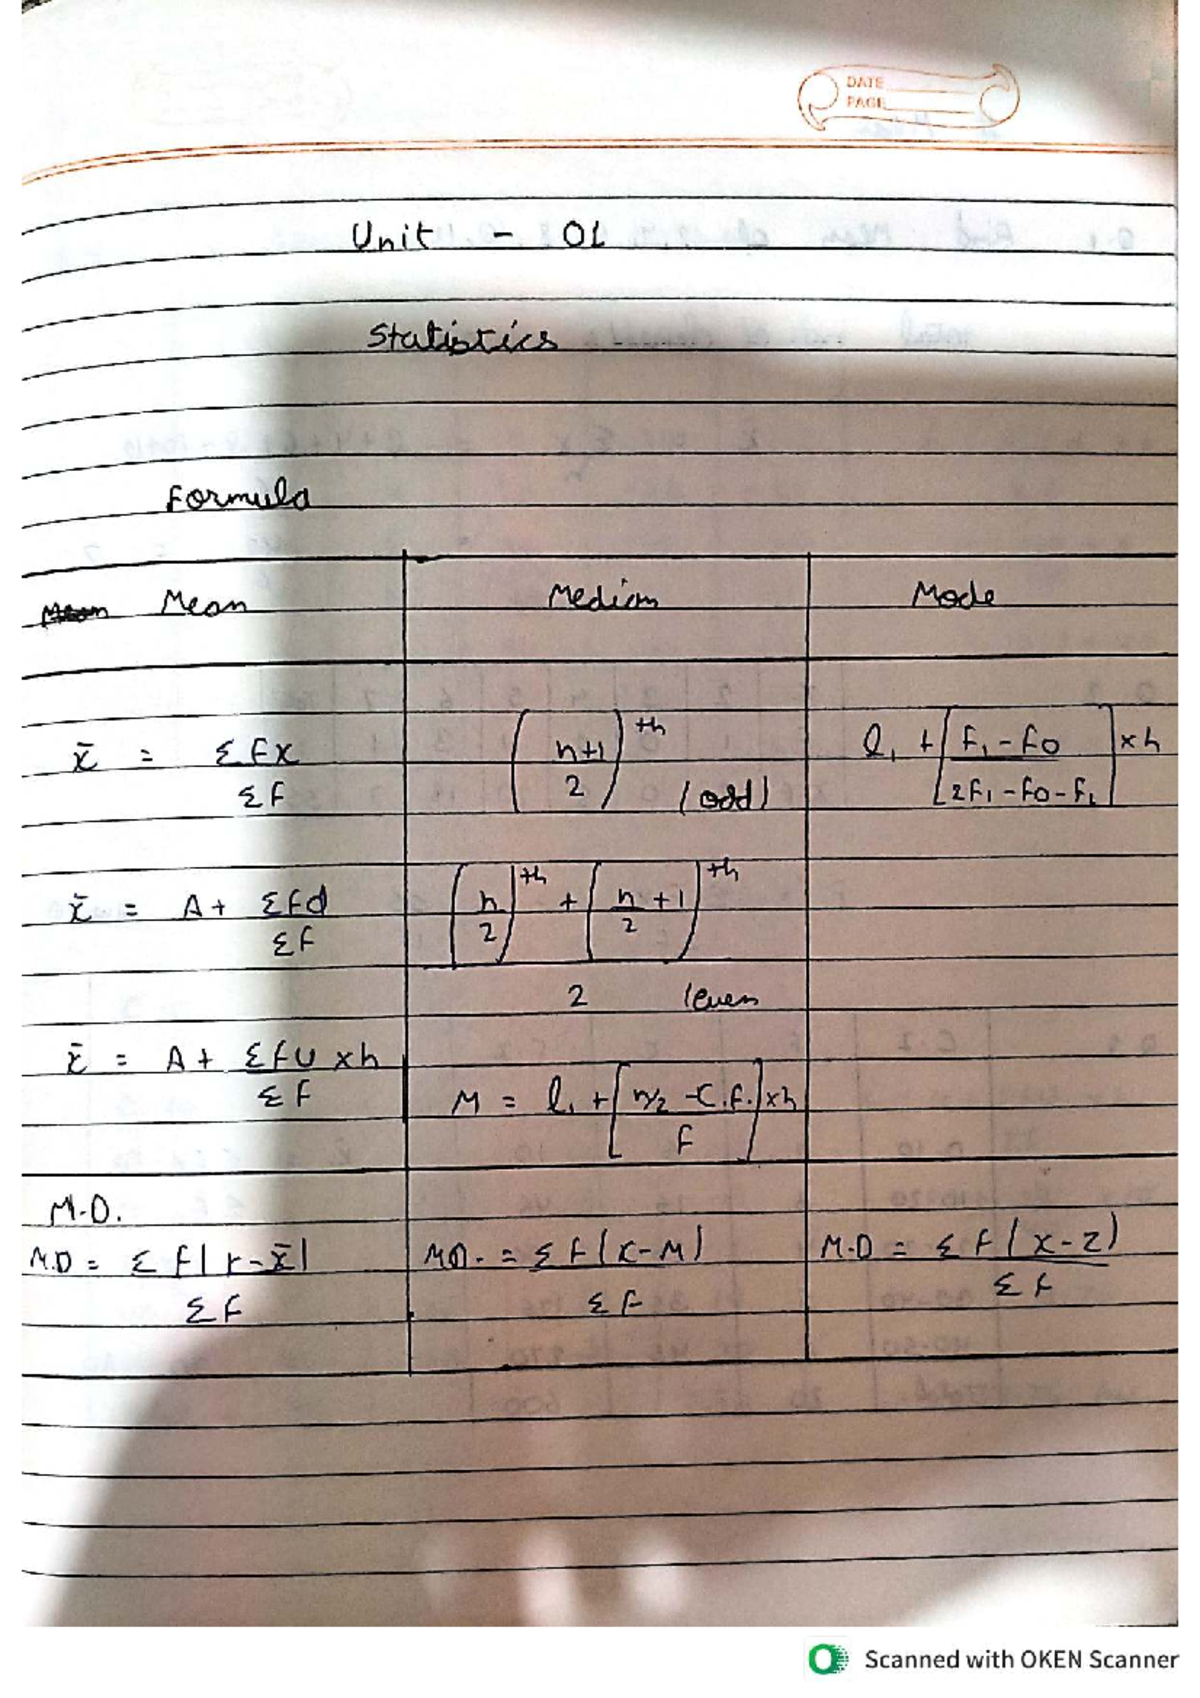 DATE
PAGE
Unit - 01
Statistics
Formula
Mean Median Mode
x̄ = Σfx / Σf
(n+1 / 2)th (odd)
l₁ + [f₁ - f0 / 2f₁ - f0 - f₂] × h
x̄ = A + Σfd / Σf
(n / 2)th + (n / 2 + 1)th / 2 (even
x̄ = A + Σfu / Σf × h
M = l₁ + [n/2 - C.f. / f] × h
M.D.
M.D = Σf|x - x̄| / Σf
M.D. = Σf(x - M) / Σf
M.D = Σf(x - z) / Σf
Scanned with OKEN Scanner